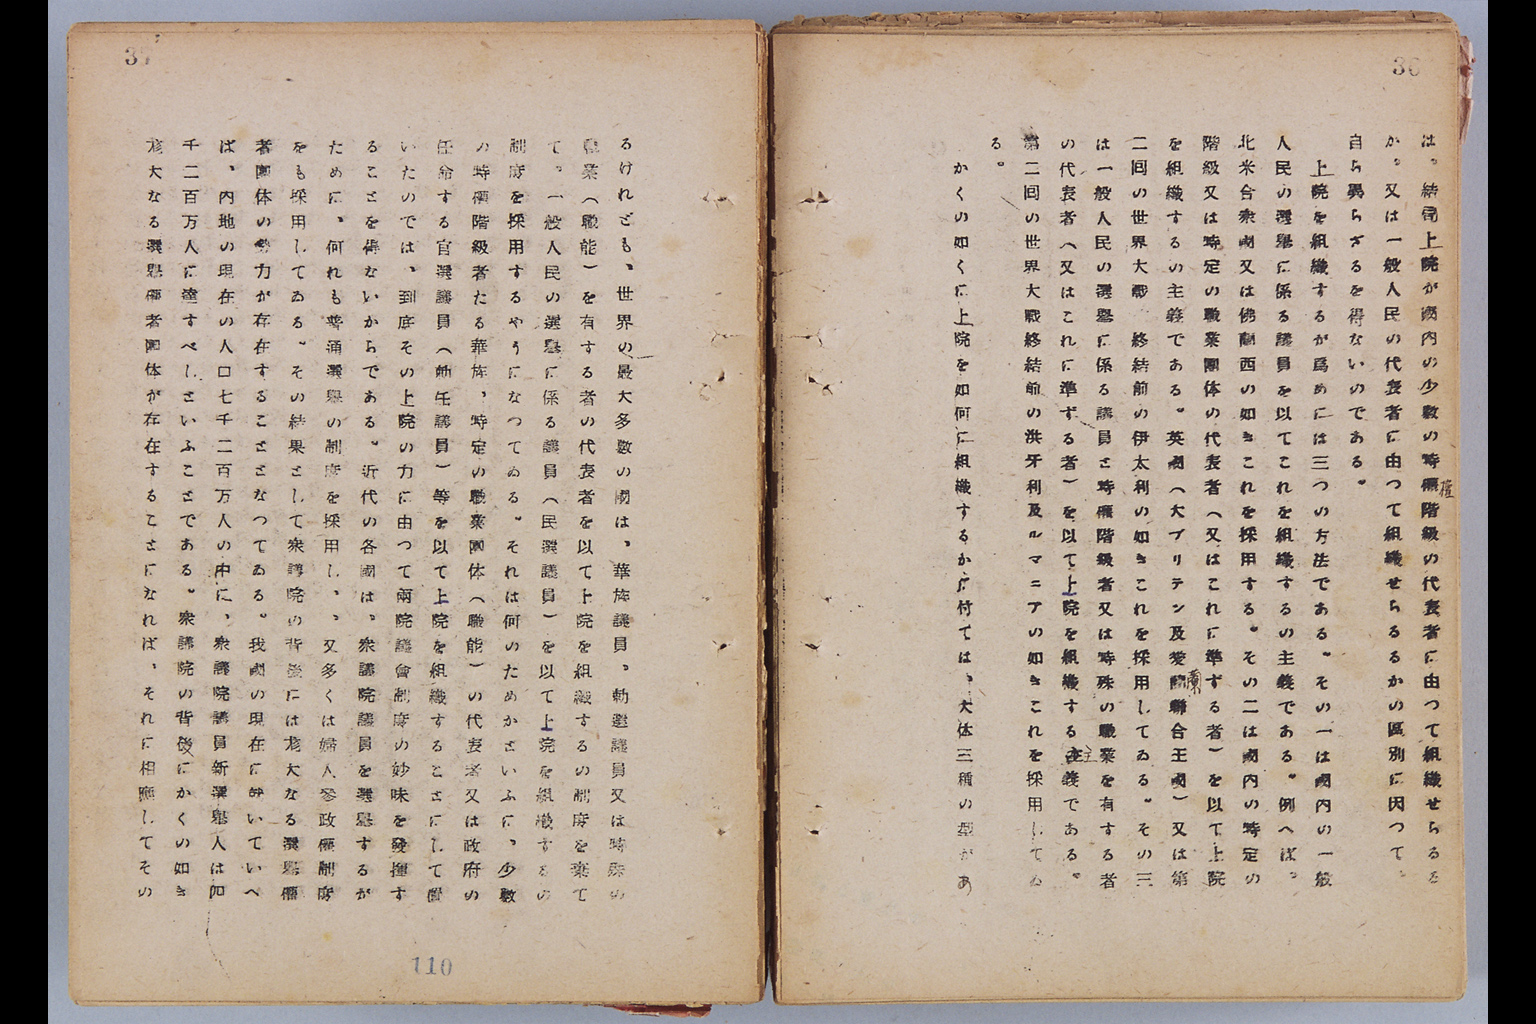 36
は。結局上院が國内の少数の特権階級の代表者に由つて組織せらるる
か。又は一般人民の代表者に由つて組織せらるるかの區別に因つて。
自ら異らざるを得ないのである。
上院を組織するが爲めには三つの方法である。その一は國内の一般
人民の選挙に係る議員を以てこれを組織するの主義である。例へば。
北米合衆國又は佛蘭西の如きこれを採用する。その二は國内の特定の
階級又は特定の職業團体の代表者（又はこれに準ずる者）を以て上院
を組織するの主義である。英國（大ブリテン及愛蘭聯合王國）又は第
二回の世界大戰終結前の伊太利の如きこれを採用してゐる。その三
は一般人民の選挙に係る議員と特権階級者又は特殊の職業を有する者
の代表者（又はこれに準ずる者）を以て上院を組織する主義である。
第二回の世界大戰終結前の洪牙利及ルマニアの如きこれを採用してゐ
る。
かくの如くに上院を如何に組織するかに付ては、大体三種の型があ
37
るけれども、世界の最大多數の國は、華族議員、勅選議員又は特殊の
職業（職能）を有する者の代表者を以て上院を組織するの制度を棄て
て。一般人民の選挙に係る議員（民選議員）を以て上院を組織するの
制度を採用するやうになつてゐる。それは何のためかといふに、少數
の特権階級者たる華族、特定の職業團体（職能）の代表者又は政府の
任命する官選議員（勅任議員）等を以て上院を組織することにして置
いたのでは、到底その上院の力に由つて兩院議會制度の妙味を發揮す
ることを得ないからである。近代の各國は、衆議院議員を選挙するが
ために、何れも普通選挙の制度を採用し、又多くは婦人參政權制度
をも採用してゐる。その結果として衆議院の背後には尨大なる選挙權
者團体の勢力が存在することとなつてゐる。我國の現在に於いていへ
ば、内地の現在の人口七千二百万人の中に、衆議院議員新選挙人は四
千二百万人に達すべしといふことである。衆議院の背後にかくの如き
尨大なる選挙權者團体が存在することになれば、それに相應してその
110